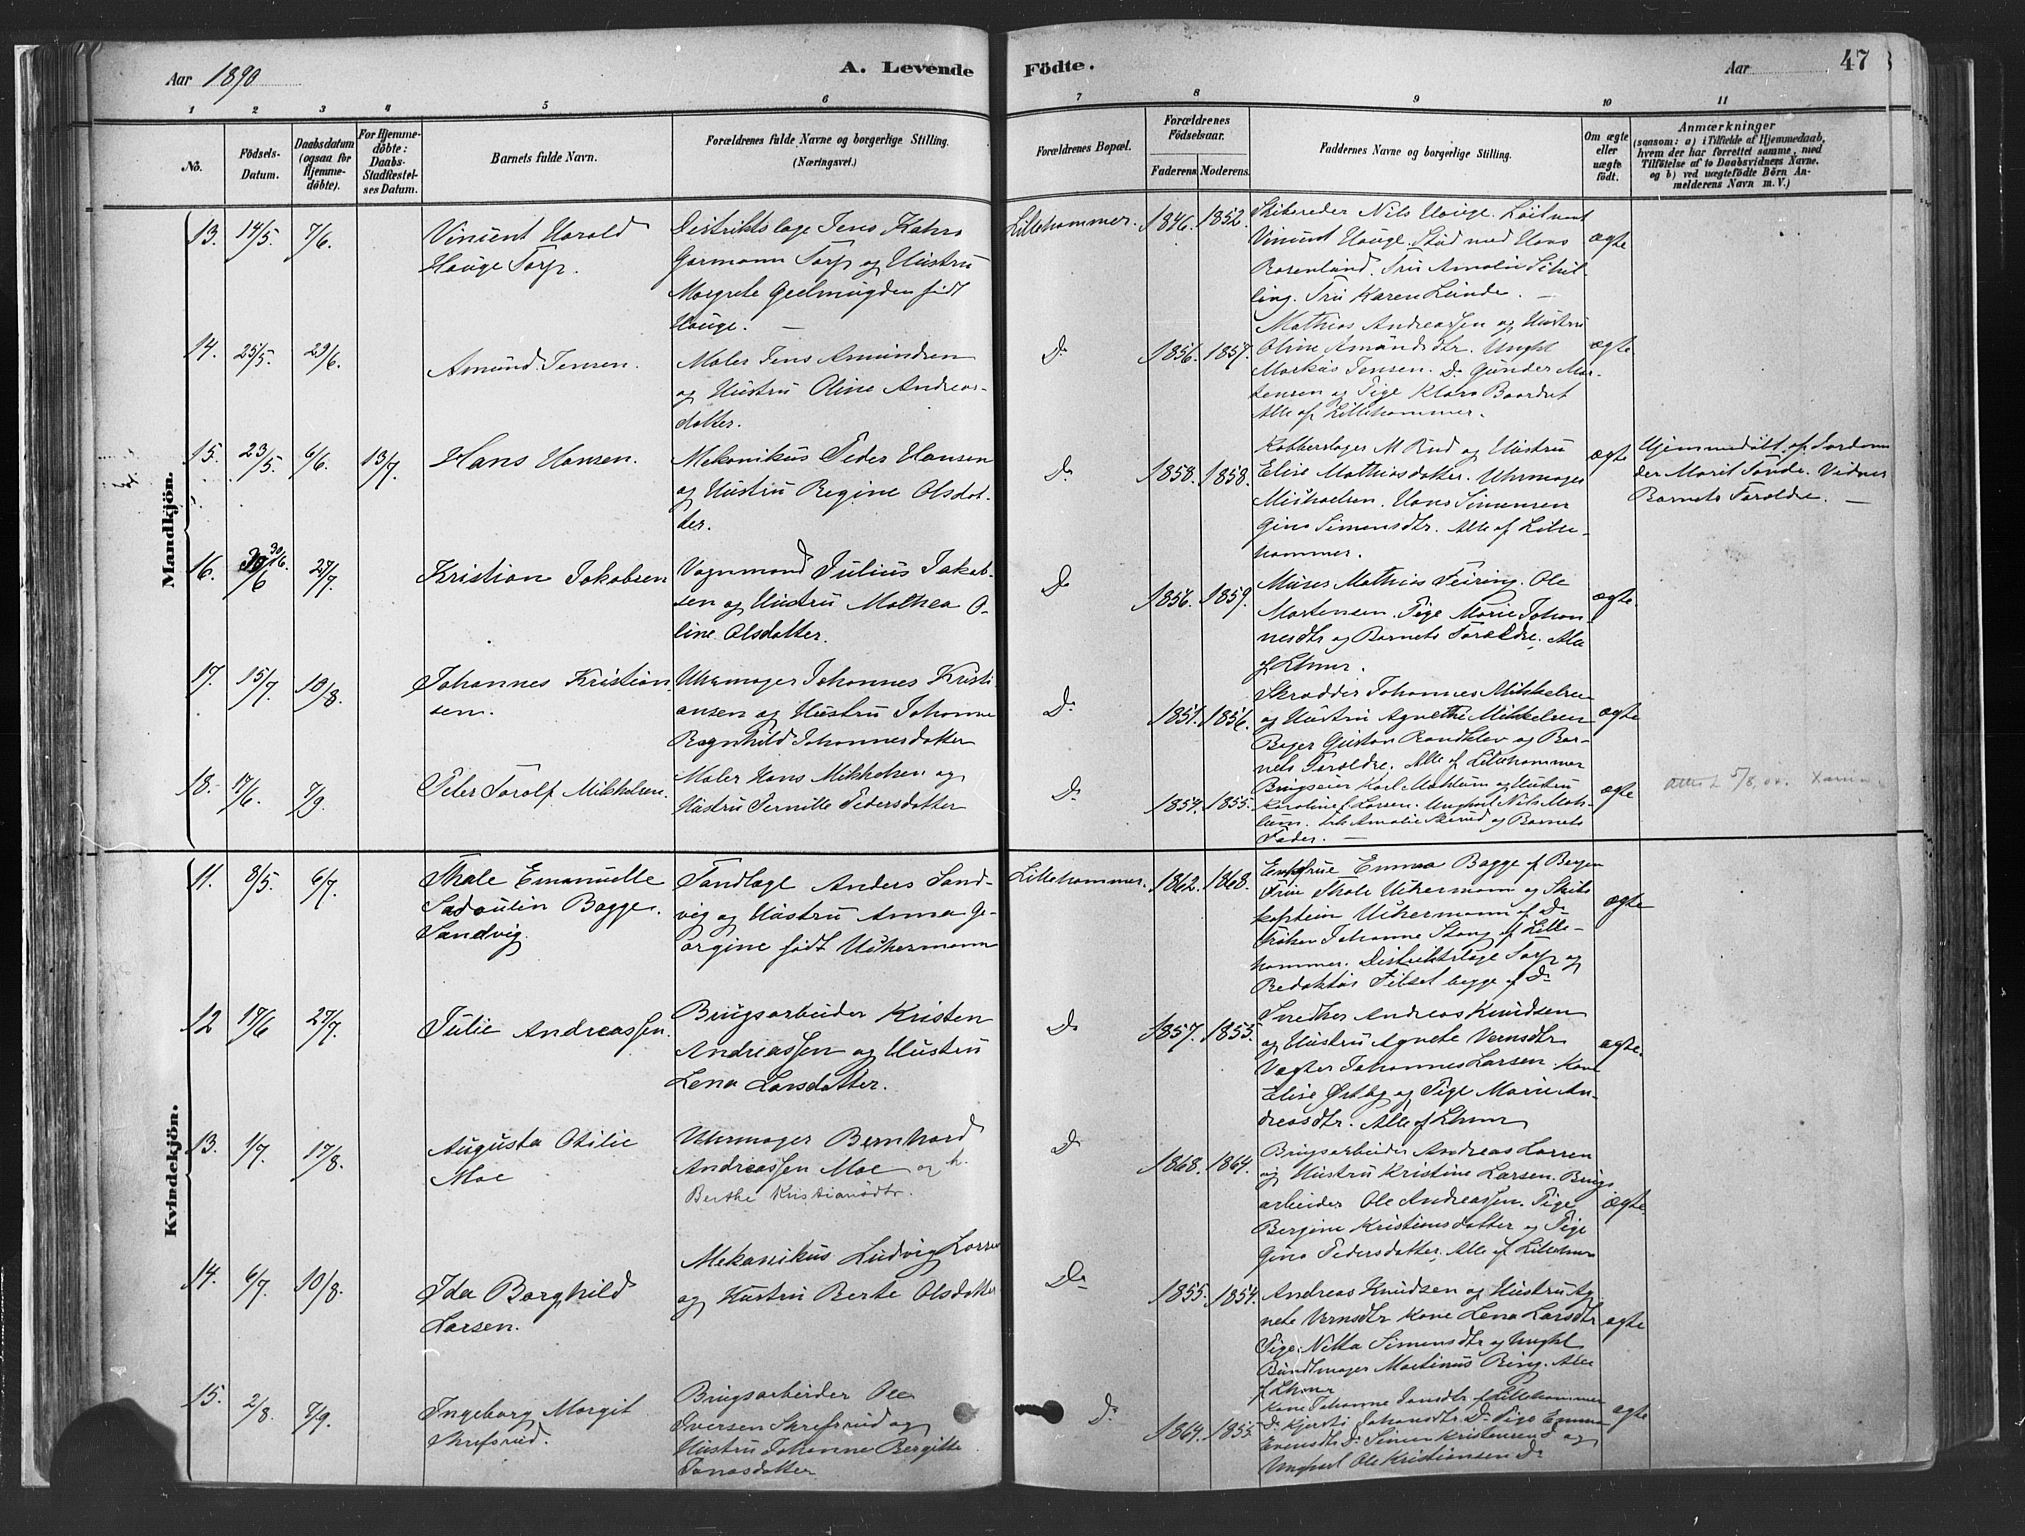 Aar 1890
A. Levende
Födte.
Aar
47
1 2 3 4 5 6 7 8 9 10 11
No.
Födsels-
Datum.
Daabsdatum
(ogsaa for
Hjemme-
döbte).
For Hjemme-
döbte:
Daabs-
Stadfæstel-
ses Datum.
Barnets fulde Navn.
Forældrenes fulde Navne og borgerlige Stilling.
(Næringsvei.)
Forældrenes Bopæl.
Forældrenes
Födselsaar.
Faderens. Moderens.
Faddernes Navne og borgerlige Stilling.
Om ægte
eller
uægte
födt.
Anmærkninger
(saasom: a) i Tilfælde af Hjemmedaab,
hvem der har forrettet samme, med
Tilföielse af to Daabsvidners Navne.
og b) ved uægtefödte Börn An-
melderens Navn m. V.)
Mandkjön.
13. 14/5 7/6
Vincent Harald
Hauge Torp.
Distriktslæge Jens Kahrs
Garmann Torp og Hustru
Margrete Geelmuyden født
Hauge.
Lillehammer. 1846. 1852.
Skibsreder Nils Hauge. Løitnant
Vincent Hauge. Stud med Hans
Rosenlund. Fru Amalie Schil-
ling. Fru Karen Lunde.
ægte
14. 25/5 29/6
Amund Jensen.
Maler Jens Amundsen
og Hustru Oline Andreas-
datter.
Do 1856. 1857.
Mathias Andreassen og Hustru
Oline Amundsdtr. Ungkl
Markus Jensen. Do Gunder Mar-
tensen og Pige Klara Baardset
Alle af Lillehammer.
ægte
15. 23/5 6/6 13/7
Hans Hansen.
Mekanikus Peder Hansen
og Hustru Regine Olsdat-
ter.
Do 1858. 1858.
M Rud og Hustru
Elise Mathiasdatter. Uhrmager
Mikaelsen. Hans Simensen
Gina Simensdtr. Alle af Lille-
hammer.
ægte
Hjemmedøbt af Jordemo
der Marit Sande. Vidner
Barnets Forældre.
16. 30/6 30/6. 27/7
Kristian Jakobsen
Vognmand Julius Jakob-
sen og Hustru Mathea O-
line Olsdatter.
Do 1856. 1859.
Murer Mathias Feiring. Ole
Martensen. Pige Marie Johan-
nesdtr og Barnets Forældre. Alle
af Lhmer.
ægte.
17. 15/7 10/8
Johannes Kristian
sen.
Uhrmager Johannes Kristi-
ansen og Hustru Johanne
Ragnhild Johannesdatter
Do 1851. 1856.
Skrædder Johannes Mikkelsen
og Hustru Agnethe Mikkelsen
Bager Gustav Randklev og Bar-
nets Forældre. Alle af Lillehammer
ægte
18. 17/6. 7/9
Peter Torolf Mikkelsen.
Maler Hans Mikkelsen og
Hustru Pernille Pedersdatter
Do 1854. 1855.
Brugseier Karl Mæhlum og Hustru
Karoline f. Larsen. Ungkarl Nils Mæh-
lum. Amalie Skurud og Barnets
Fader.
ægte
Kvindekjön.
11. 8/5. 6/7.
Thale Emanuelle
Bagge
Sandvig.
Tandlæge Anders Sand-
vig og Hustru Anna Ge-
orgine født Uchermann
Lillehammer. 1862. 1868.
Enkefrue Emma Bagge af Bergen
Frue Thale Uchermann og Skibs
kaptein Uchermann af Do
Frøken Johanne Stang af Lille-
hammer. Distriktslæge Torp og
Redaktør Filset begge af Do
ægte
12 17/6 27/7
Julie Andreassen.
Brugsarbeider Kristen
Andreassen og Hustru
Lena Larsdatter.
Do 1857. 1855.
Snedker Andreas Knudsen
og Hustru Agnete Vernsdtr
Vægter Johannes Larsen. Kone
Elise Østby og Pige Marie An-
dreasdtr. Alle af Lhmer
ægte.
13. 1/7. 17/8.
Augusta Otilie
Moe
Uhrmager Bernhard
Andreassen Moe og h.
Berthe Kristiansdtr.
Do 1868. 1864.
Brugsarbeider Andreas Larsen
og Hustru Kristine Larsen. Brugs
arbeider Ole Andreassen. Pige
Bergine Kristiansdatter og Pige
Gina Pedersdatter. Alle af Lillehmer
ægte.
14. 6/7. 10/8.
Ida Borghild
Larsen.
Mekanikus Ludvig Larsen
og Hustru Berte Olsdatter
Do 1855. 1854.
Andreas Knudsen og Hustru Ag
nete Vernsdtr Kone Lena Larsdtr
Pige Simensdtr og Ungkl
Buntmager Martinus Ring. Alle
af Lhmer
ægte
15. 2/8. 7/9.
Ingeborg Margit
Skrefsrud.
Brugsarbeider Ole
Iversen Skrefsrud og
Hustru Johanne Bergitte
Jonasdatter
Do 1864. 1855.
Kone Johanne Jonsdtr. af Lillehammer
Do Kjersti Johansdtr. Do Pige Emma
Evensdtr Do Simen Kristensen Do og
Ungkarl Ole Kristiansen Do
ægte